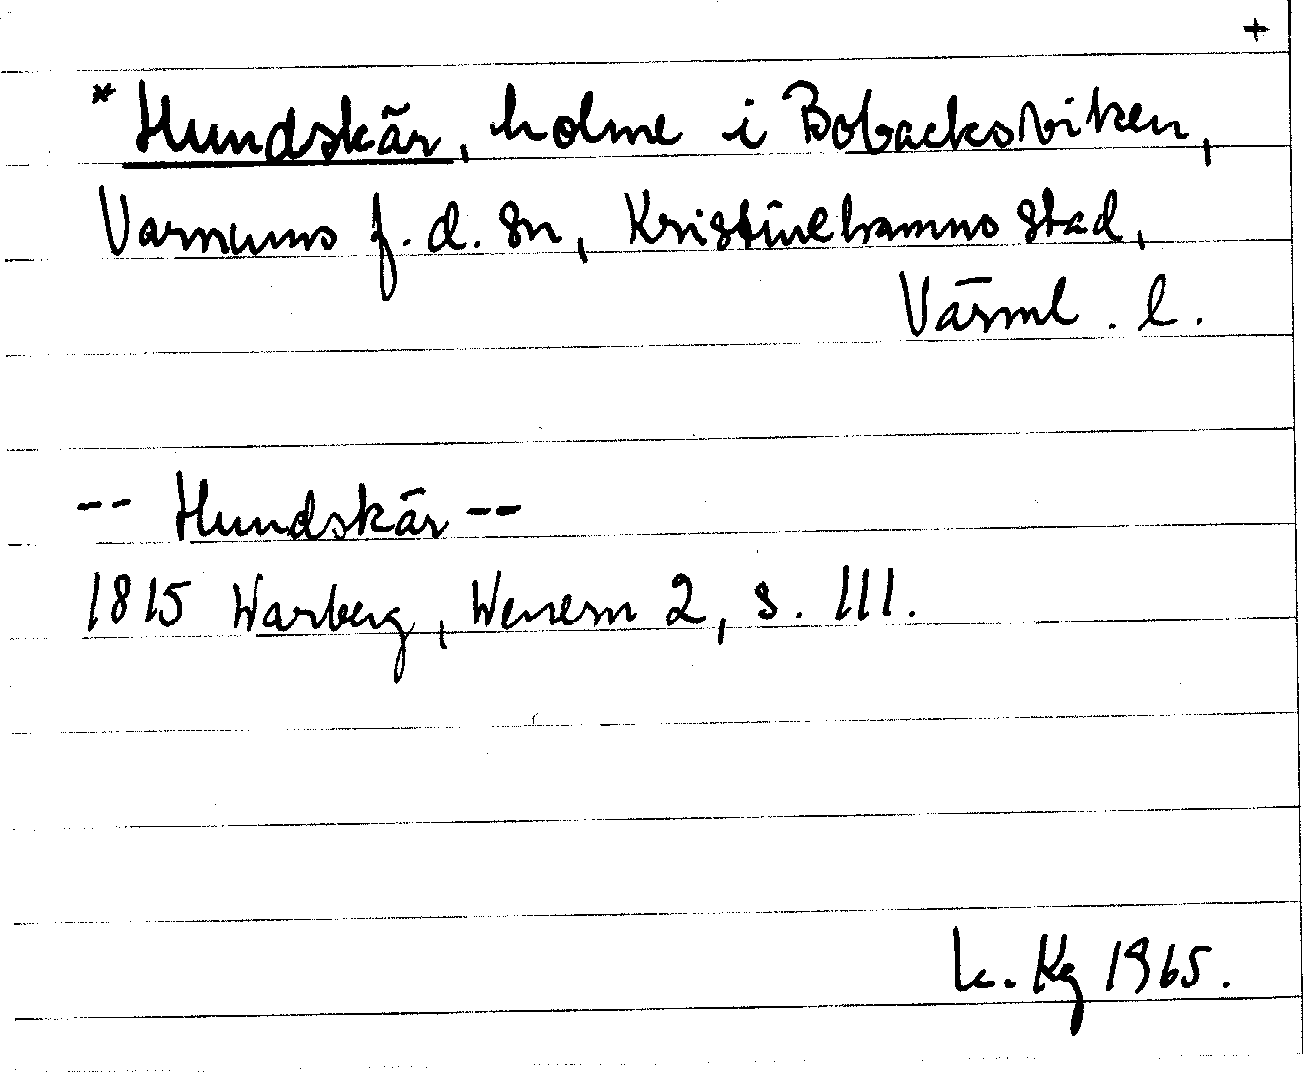 +
* Hundskär, holme i Bobacksviken,
Varnums f.d. sn, Kristinehamns stad,
Värml. l.
-- Hundskär --
1815 Warberg, Wenern 2, s. 111.
k. Kg 1965.